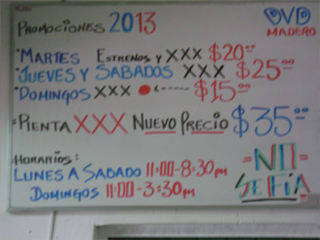 Promociones 2013
DVD
MADERO
*MARTES Estrenos y XXX $20.00
*JUEVES Y SABADOS XXX $25.00
*DOMINGOS XXX $15.00
*RENTA XXX NUEVO PRECIO $35.00
HORARIOS:
LUNES A SABADO 11:00-8:30pm
DOMINGOS 11:00-3:30pm
=NO=
SE FÍA